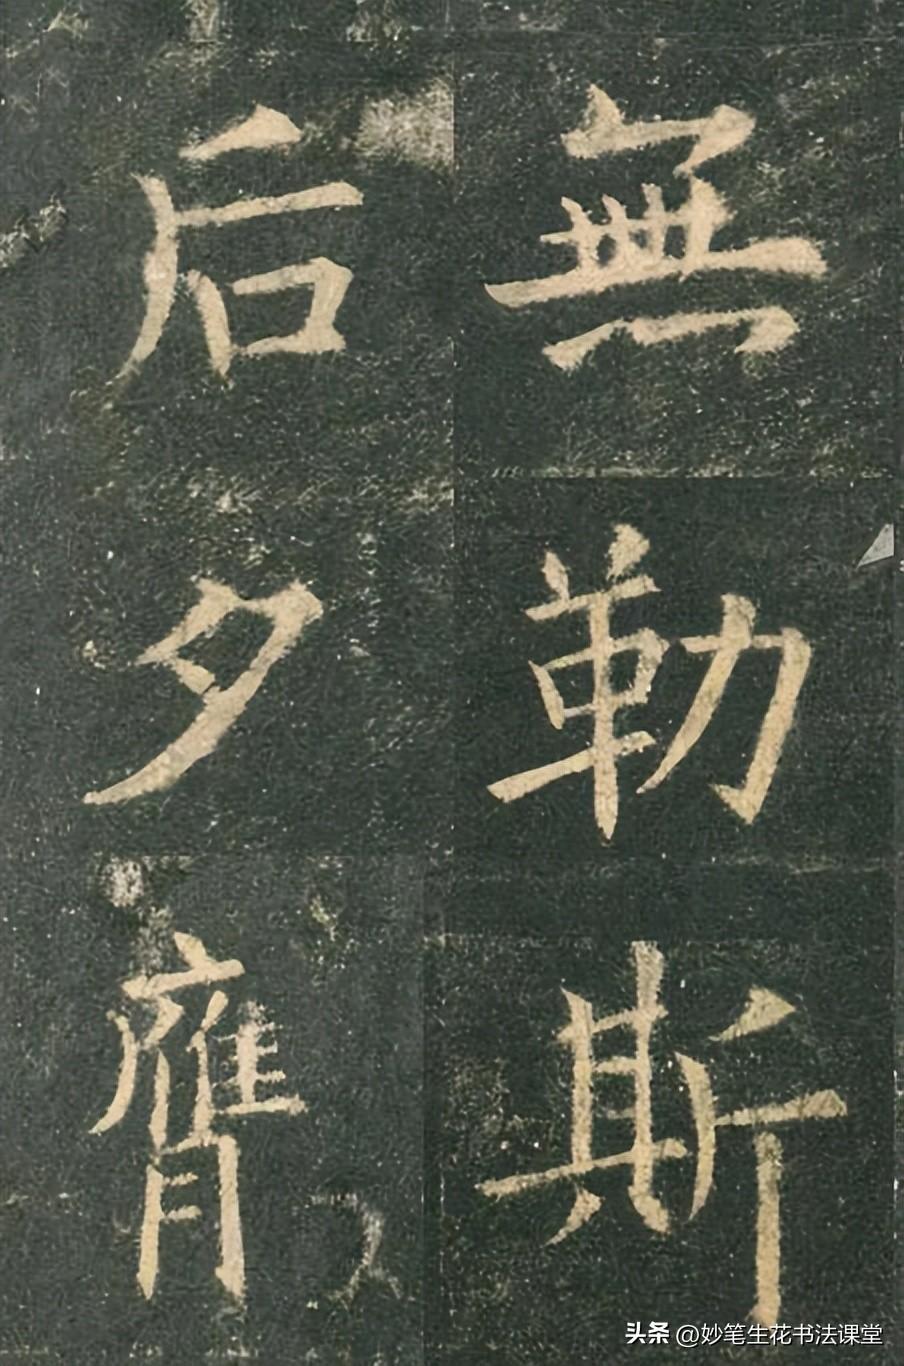 無勒斯
后夕膺
头条 @妙笔生花书法课堂